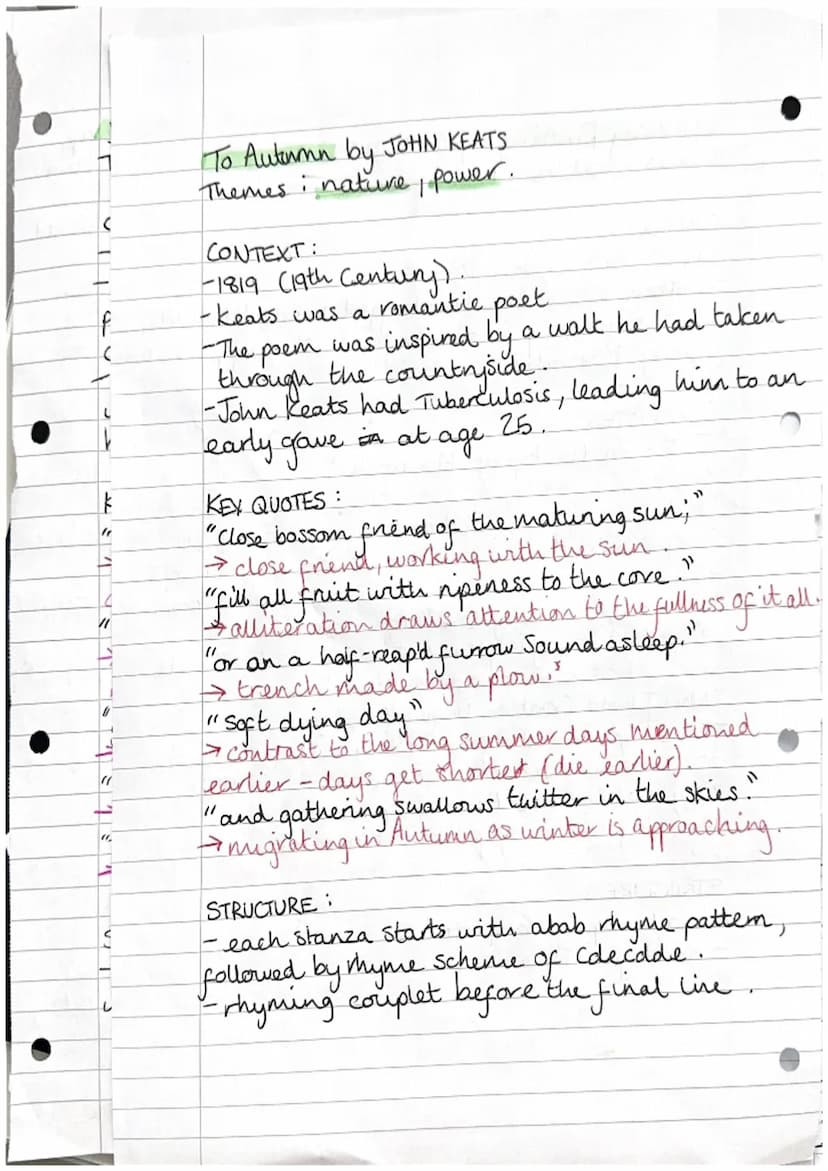 To Autumn by JOHN KEATS
Themes : nature, power.
CONTEXT :
-1819 (19th Century).
- Keats was a romantic poet
-The poem was inspired by a walk he had taken
through the countryside.
-John Keats had Tuberculosis, leading him to an
early grave at age 25.
KEY QUOTES :
"Close bossom friend of the maturing sun;"
→ close friend, working with the sun.
"fill all fruit with ripeness to the core."
→ alliteration draws attention to the fullness of it all.
"or on a half-reap'd furrow Sound asleep."
→ trench made by a plow.
"Soft dying day"
→ contrast to the long summer days mentioned
earlier - days get shorter (die earlier).
"and gathering swallows twitter in the skies."
→ migrating in Autumn as winter is approaching.
STRUCTURE :
- each stanza starts with abab rhyme pattern,
followed by rhyme scheme of cdecdde.
- rhyming couplet before the final line.